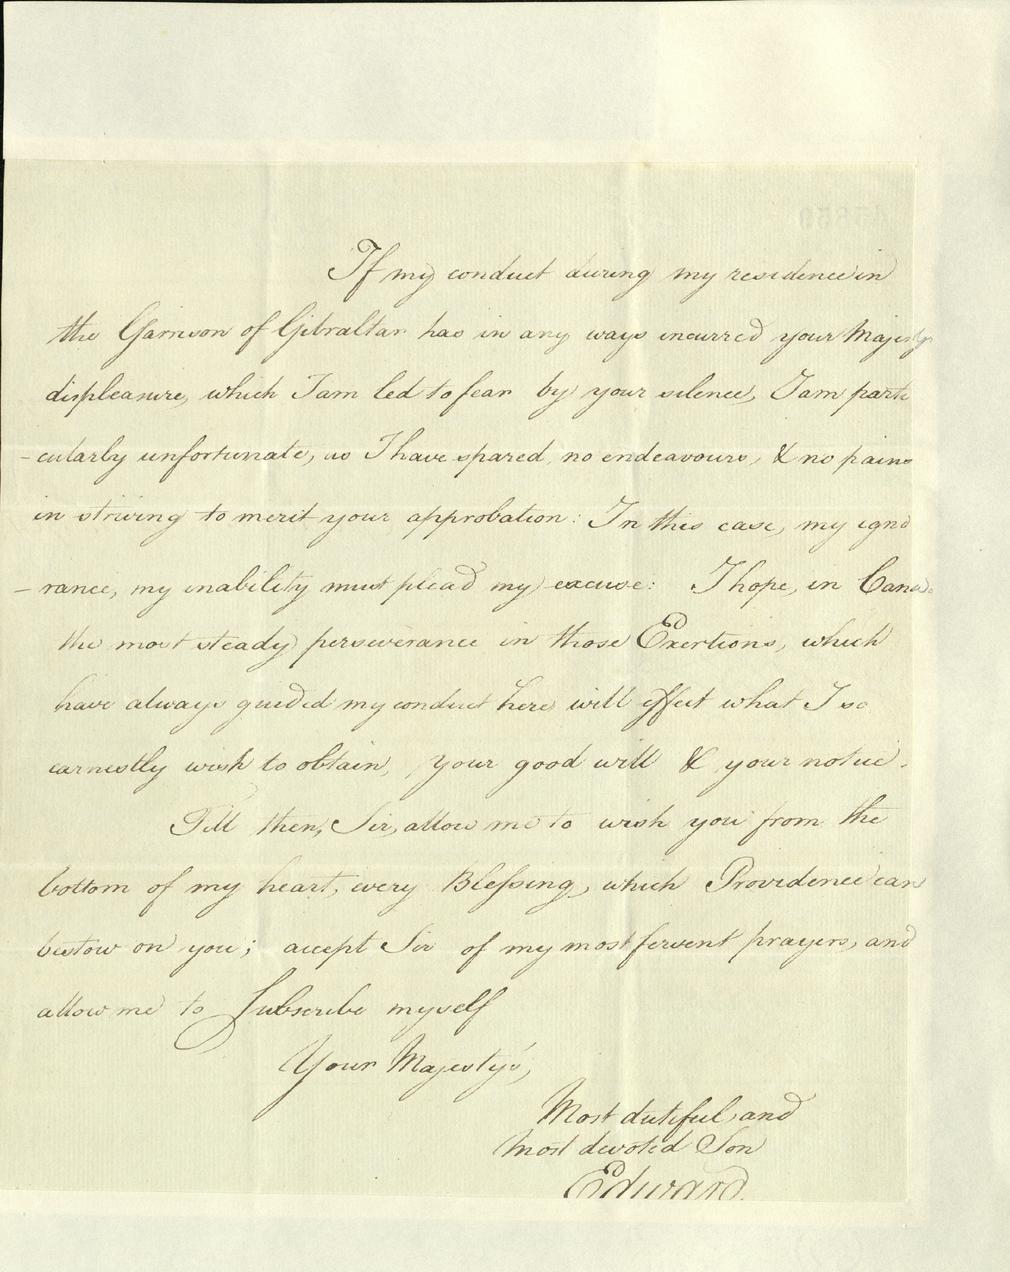 If my conduct during my residence in
the Garrison of Gibraltar has in any ways incurred your Majesty
displeasure, which I am led to fear by your silence, I am parti
-cularly unfortunate, as I have spared no endeavours, & no pains
in striving to merit your approbation: In this case, my igno
-rance, my inability must plead my excuse: I hope, in Canada
the most steady perseverance in those Exertions, which
have always guided my conduct here will effect what I so
earnestly wish to obtain, your good will & your notice.
Till then, Sir, allow me to wish you from the
bottom of my heart, every Blessing, which Providence can
bestow on you; accept Sir of my most fervent prayers, and
allow me to Subscribe myself
Your Majesty's,
Most dutiful and
most devoted Son
Edward.